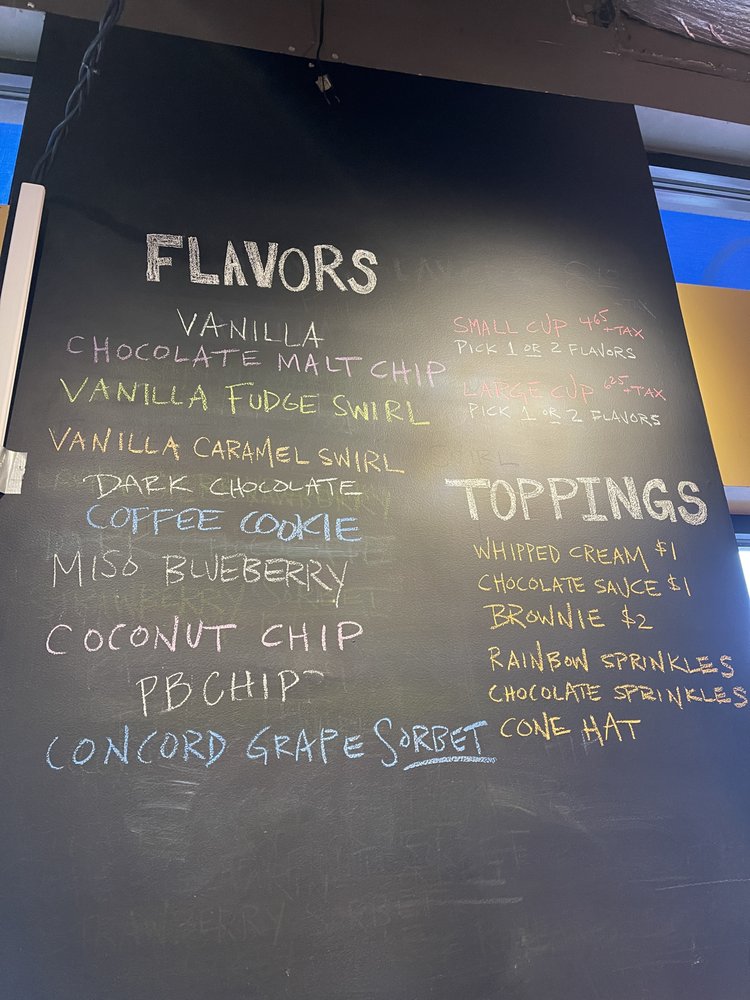 FLAVORS
VANILLA
CHOCOLATE MALT CHIP
VANILLA FUDGE SWIRL
VANILLA CARAMEL SWIRL
DARK CHOCOLATE
COFFEE COOKIE
MISO BLUEBERRY
COCONUT CHIP
PB CHIP
CONCORD GRAPE SORBET
SMALL CUP 4.65 +TAX
PICK 1 OR 2 FLAVORS
LARGE CUP 6.25 +TAX
PICK 1 OR 2 FLAVORS
TOPPINGS
WHIPPED CREAM $1
CHOCOLATE SAUCE $1
BROWNIE $2
RAINBOW SPRINKLES
CHOCOLATE SPRINKLES
CONE HAT